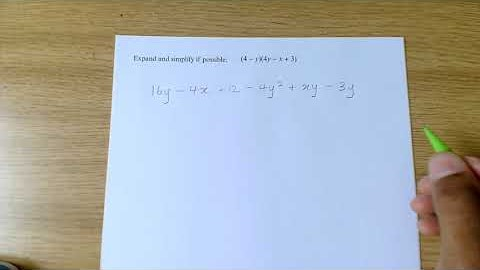 Expand and simplify if possible. (4 – y)(4y – x + 3)
16y - 4x + 12 - 4y² + xy - 3y